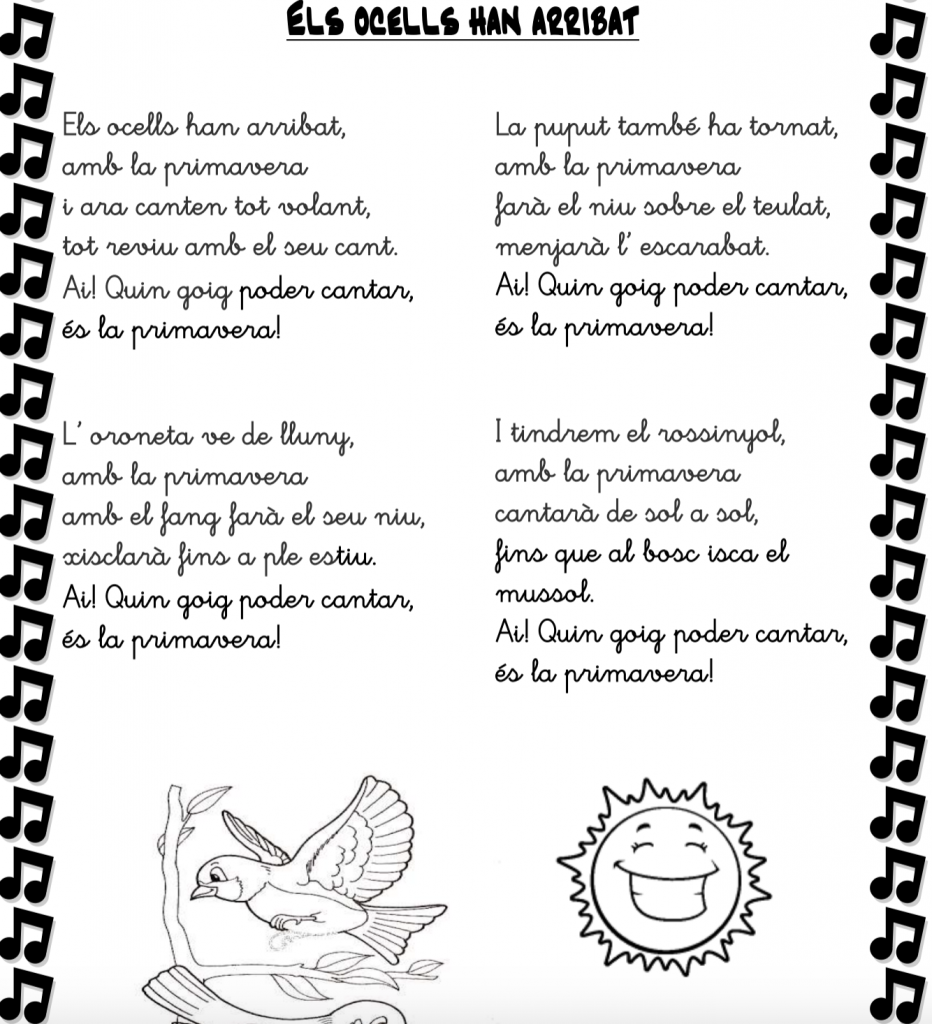 ELS OCELLS HAN ARRIBAT
Els ocells han arribat,
amb la primavera
i ara canten tot volant,
tot reviu amb el seu cant.
Ai! Quin goig poder cantar,
és la primavera!
L' oroneta ve de lluny,
amb la primavera
amb el fang farà el seu niu,
xisclarà fins a ple estiu.
Ai! Quin goig poder cantar,
és la primavera!
La puput també ha tornat,
amb la primavera
farà el niu sobre el teulat,
menjarà l' escarabat.
Ai! Quin goig poder cantar,
és la primavera!
I tindrem el rossinyol,
amb la primavera
cantarà de sol a sol,
fins que al bosc isca el
mussol.
Ai! Quin goig poder cantar,
és la primavera!